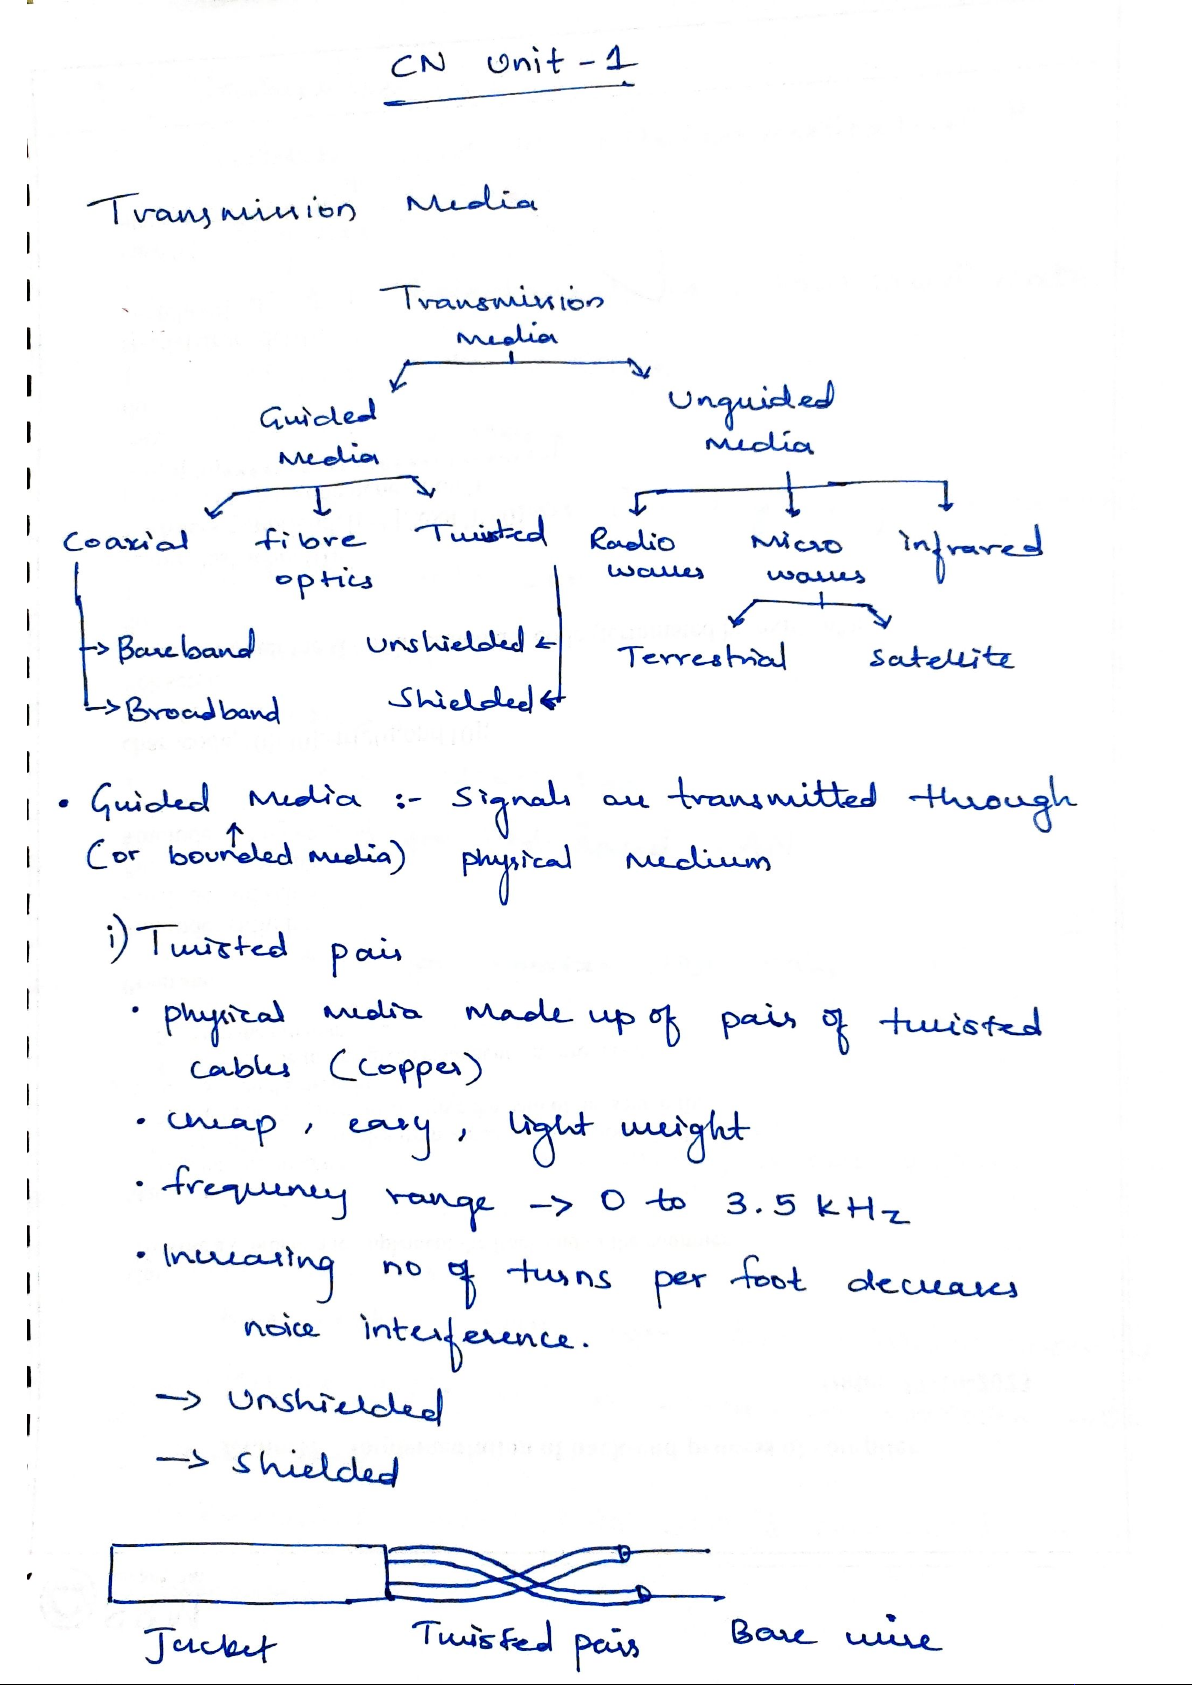 CN Unit-1
Transmission Media
Transmission
Media
Guided
Media
Unguided
Media
Coaxial fibre
optics Twisted Radio
waves Micro
waves infrared
→ Baseband Unshielded ← Terrestrial Satellite
→ Broadband Shielded ←
• Guided Media :- Signals are transmitted through
(or bounded media) ↑ physical medium
i) Twisted pair
• physical media made up of pair of twisted
cables (copper)
• cheap, easy, light weight
• frequency range → 0 to 3.5 kHz
• Increasing no of turns per foot decreases
noice interference.
→ Unshielded
→ Shielded
Jacket Twisted pair Bare wire